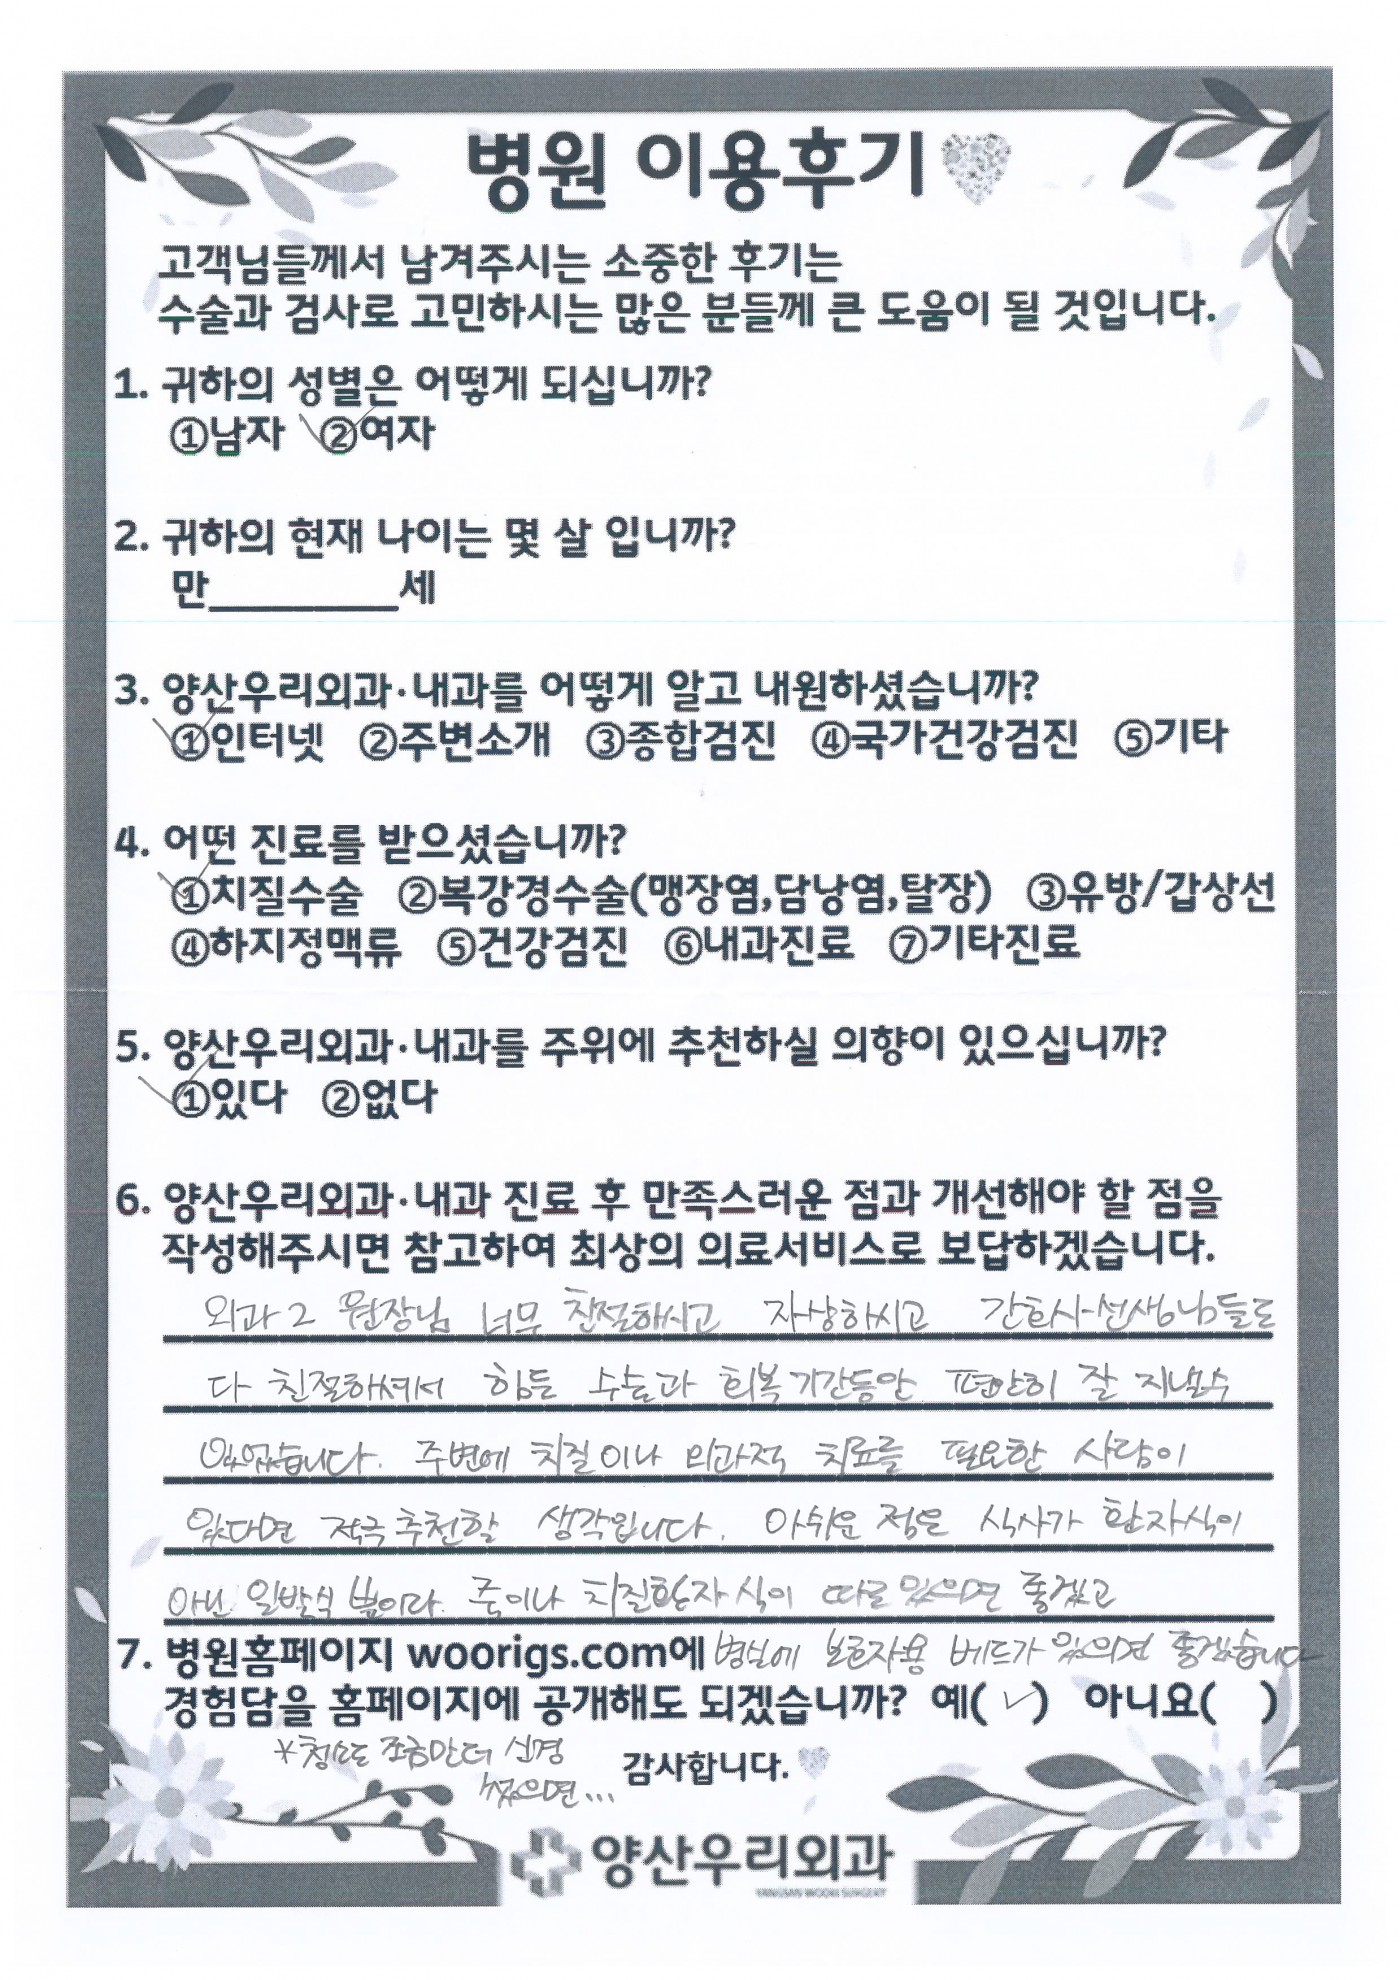 병원 이용후기
고객님들께서 남겨주시는 소중한 후기는
수술과 검사로 고민하시는 많은 분들께 큰 도움이 될 것입니다.
1. 귀하의 성별은 어떻게 되십니까?
①남자 ②여자
2. 귀하의 현재 나이는 몇 살 입니까?
만________세
3. 양산우리외과·내과를 어떻게 알고 내원하셨습니까?
①인터넷 ②주변소개 ③종합검진 ④국가건강검진 ⑤기타
4. 어떤 진료를 받으셨습니까?
①치질수술 ②복강경수술(맹장염,담낭염,탈장) ③유방/갑상선
④하지정맥류 ⑤건강검진 ⑥내과진료 ⑦기타진료
5. 양산우리외과·내과를 주위에 추천하실 의향이 있으십니까?
①있다 ②없다
6. 양산우리외과·내과 진료 후 만족스러운 점과 개선해야 할 점을
작성해주시면 참고하여 최상의 의료서비스로 보답하겠습니다.
외과2 원장님 너무 친절하시고 자상하시고 간호사선생님들도
다 친절하셔서 힘든 수술과 회복기간동안 편안히 잘 지낼수
있었습니다. 주변에 치질이나 외과적 치료를 필요한 사람이
있다면 적극추천할 생각입니다. 아쉬운 점은 식사가 환자식이
아닌 일반식 뿐이라 죽이나 치질환자식이 따로있으면 좋겠고
7. 병원홈페이지 woorigs.com에 병실에 보호자용 베드가 있으면 좋겠습니다
경험담을 홈페이지에 공개해도 되겠습니까? 예( ✓ ) 아니요( )
*청소도 조금만더 신경
썼으면...
감사합니다.
양산우리외과
YANGSAN WOORI SURGERY